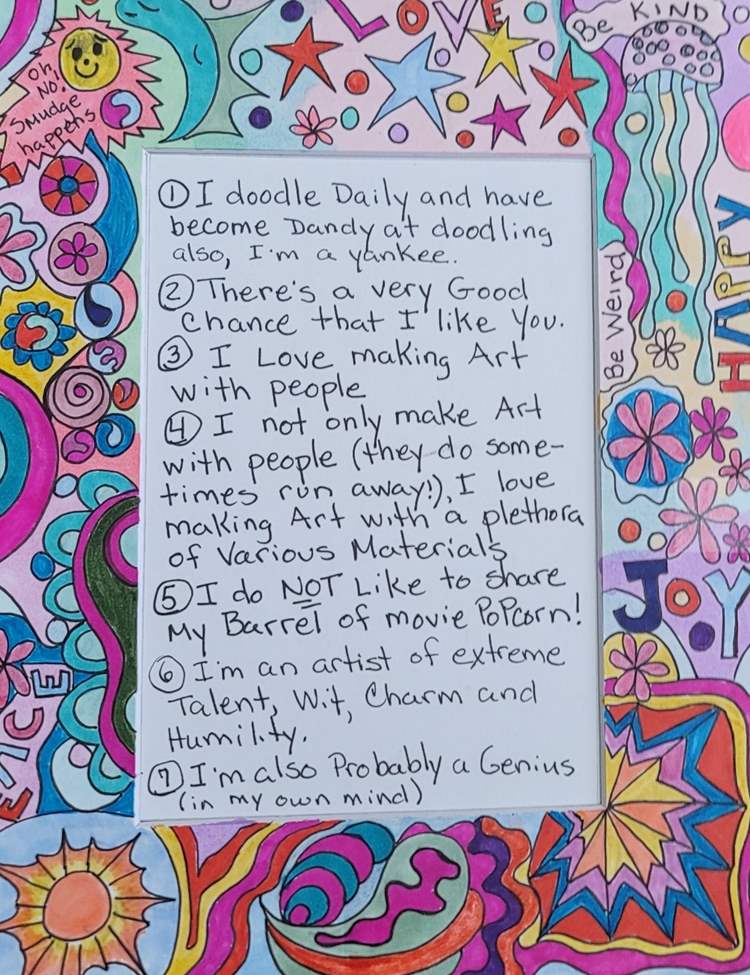 LOVE
Be KIND
Oh,
NO!
Smudge
happens
HAPPY
Be Weird
① I doodle Daily and have
become Dandy at doodling
also, I'm a yankee.
② There's a very Good
Chance that I like You.
③ I Love making Art
with people
④ I not only make Art
with people (they do some-
times run away!), I love
making Art with a plethora
of Various Materials
⑤ I do NOT Like to share
My Barrel of movie PoPcorn!
⑥ I'm an artist of extreme
Talent, Wit, Charm and
Humility.
⑦ I'm also Probably a Genius
(in my own mind)
JOY